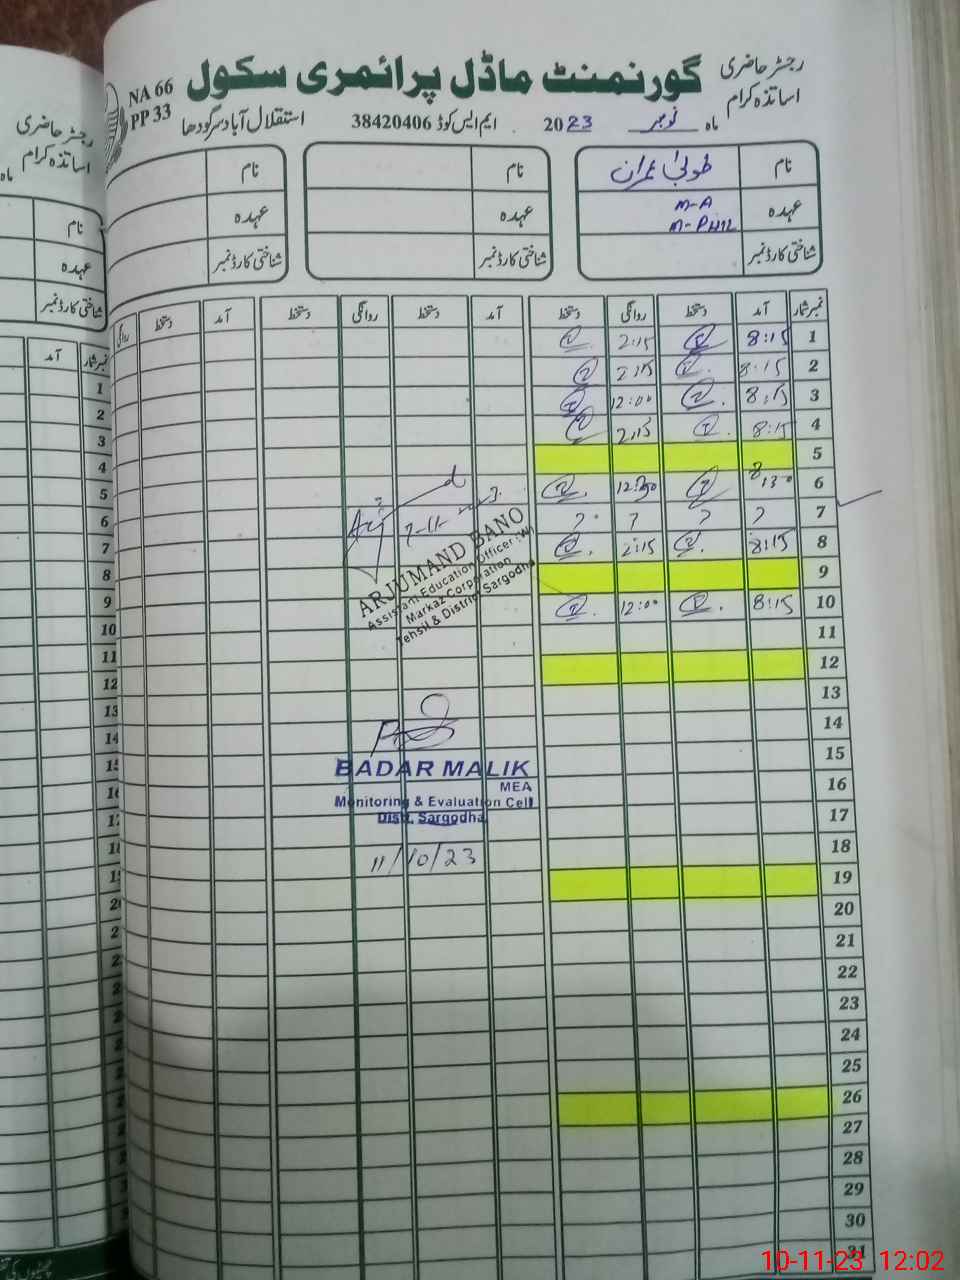 رجسٹر حاضری
اساتذہ کرام
گورنمنٹ ماڈل پرائمری سکول
NA 66
PP 33
ماہ نومبر 2023 ایم ایس کوڈ 38420406 استقلال آباد سرگودھا
نام طوبیٰ عمران
عہدہ M-A
M-Phil
شناختی کارڈ نمبر
نام
عہدہ
شناختی کارڈ نمبر
نام
عہدہ
شناختی کارڈ نمبر
نمبر شمار آمد دستخط روانگی دستخط آمد دستخط روانگی دستخط آمد دستخط روانگی
1 8:15 2:15
2 8:15 2:15
3 8:15 12:00
4 8:15 2:15
5
6 8:30 12:30
7 ? ? ? ?
8 8:15 2:15
9
10 8:15 12:00
11
12
13
14
15
16
17
18
19
20
21
22
23
24
25
26
27
28
29
30
31
ARJUMAND BANO
Assistant Education Officer (W)
Markaz Corporation
Tehsil & District Sargodha
BADAR MALIK
MEA
Monitoring & Evaluation Cell
Distt. Sargodha
11/10/23
رجسٹر حاضری
اساتذہ کرام
ماہ
نام
عہدہ
شناختی کارڈ نمبر
نمبر شمار آمد
1
2
3
4
5
6
7
8
9
10
11
12
13
14
10-11-23 12:02